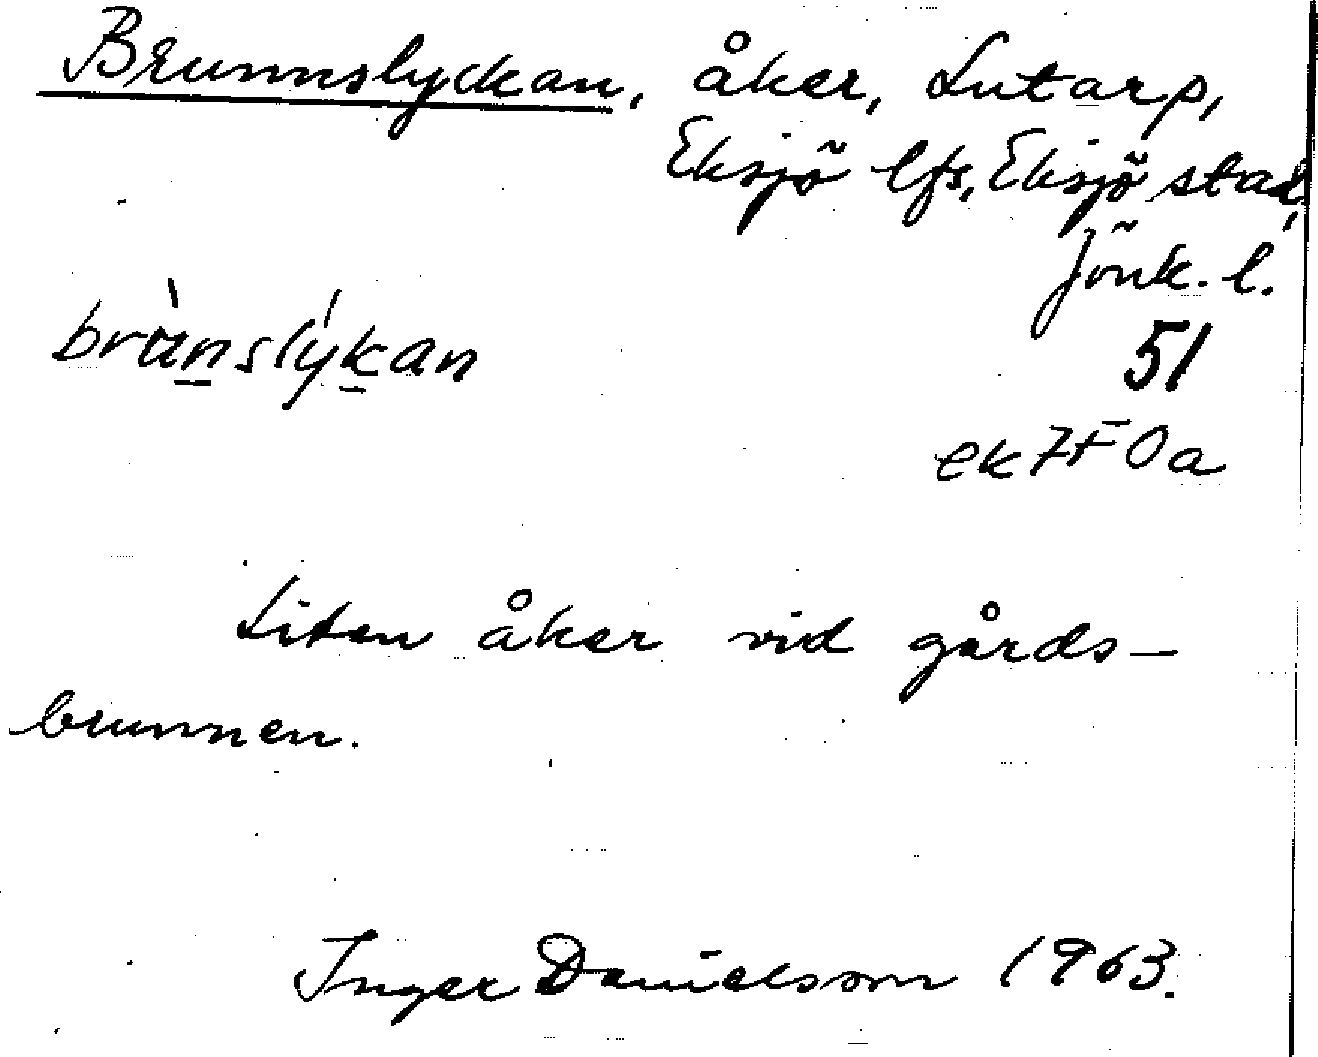 Brunnslyckan, åker, Lutarp,
Eksjö lfs, Eksjö stad,
Jönk. l.
brùn̲slýk̲an
51
ek 7F 0a
Liten åker vid gårds-
brunnen.
Inger Danielsson 1963.